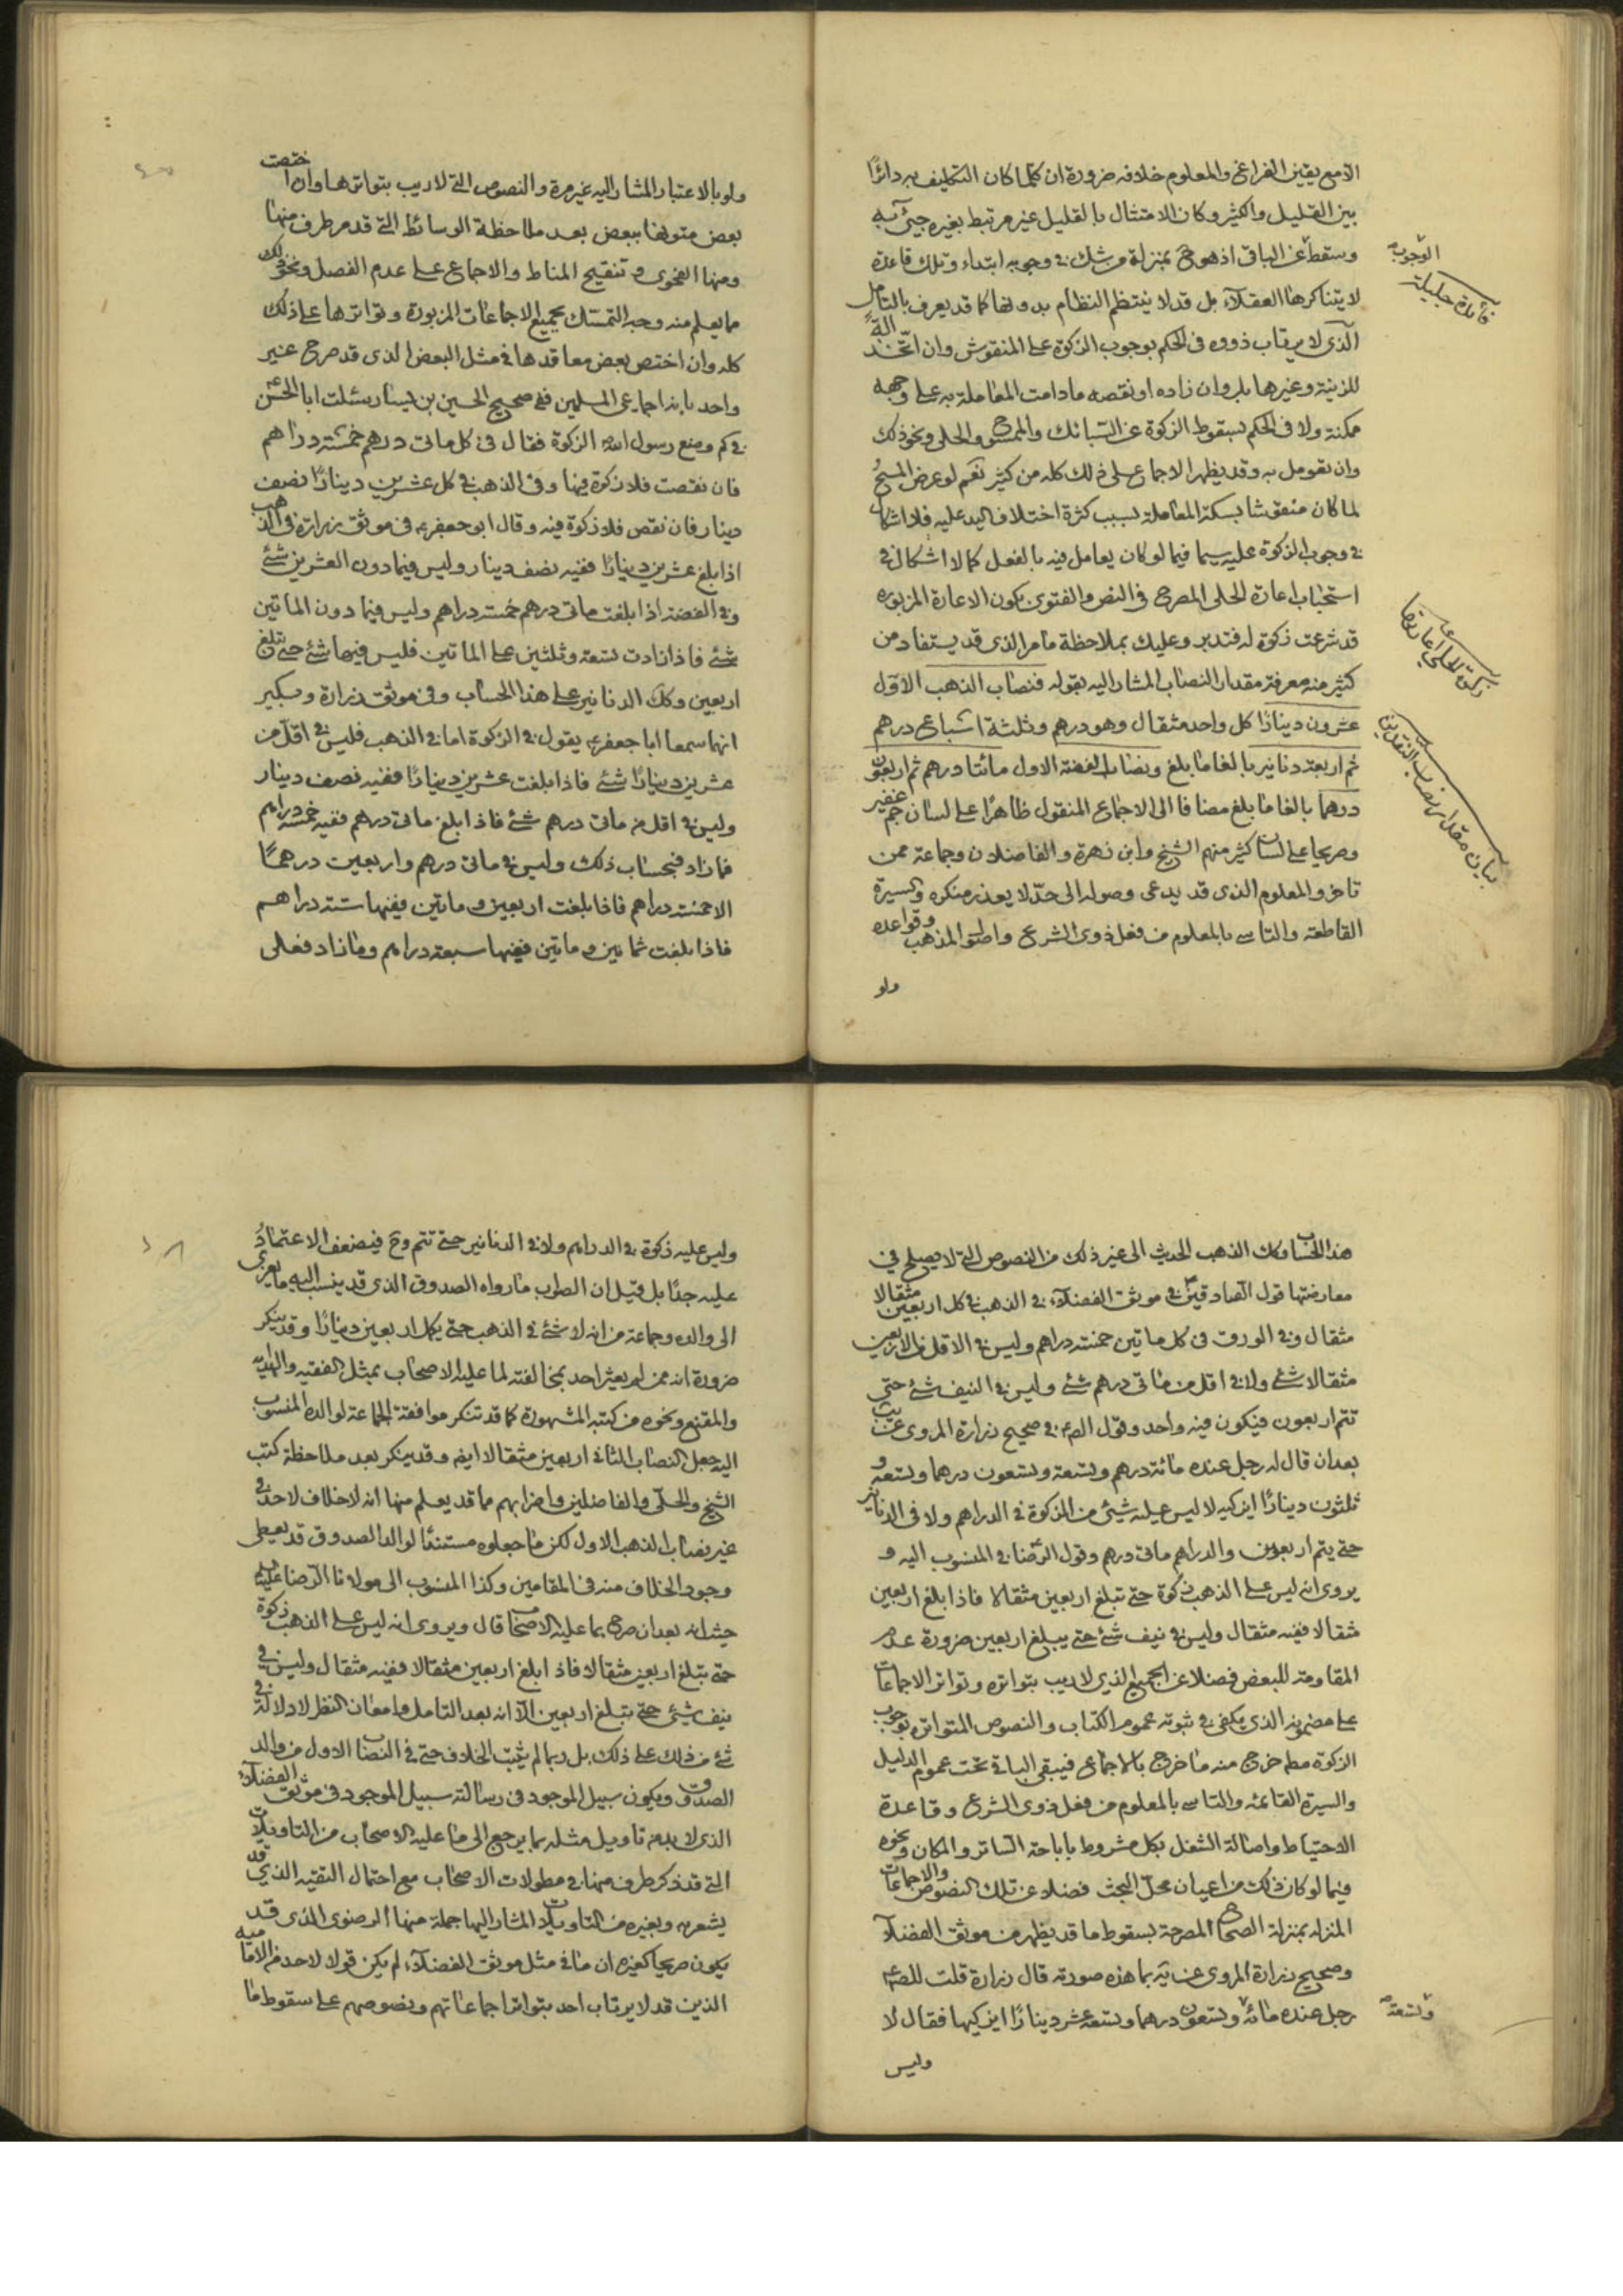 الا مع يقين الفراغ والمعلوم خلافه ضرورة ان كلما كان التكليف به دائرًا
بين القليل والكثير وكان الامتثال بالقليل غير مرتبط بغيره جيئ به
وسقط عن الباقى اذ هو ح بمنزلة من شك فى وجوبه ابتداء وتلك قاعدة
لا يتناكرها العقلاء بل قد لا ينتظم النظام بدونها كما قد يعرف بالتامل
الذى لا يرتاب ذووه فى الحكم بوجوب الزكوة على المنقوش وان اتخذ الة
للزينة وغيرها بل وان زاده او نقصه مادامت المعاملة به على وجهه
ممكنة ولا فى الحكم بسقوط الزكوة عن السبائك والممسوح والحلى ونحو ذلك
وان تعومل به وقد يظهر الاجماع على ذلك كله من كثير نعم لو عرض المسح
لما كان منقوشا بسكة المعاملة بسبب كثرة اختلاف اليد عليه فلا اشكال
فى وجوب الزكوة عليه سيما فيما لو كان يعامل فيه بالفعل كما لا اشكال فى
استحباب اعارة الحلى المصرح فى النص والفتوى بكون الاعارة المزبوره
قد شرعت زكوة له فتدبر وعليك بملاحظة ما مر الذى قد يستفاد من
كثير منه معرفة مقدار النصاب المشار اليه بقوله فنصاب الذهب الاول
عشرون دينارًا كل واحد مثقال وهو درهم وثلثة اسباع درهم
ثم اربعة دنانير بالغا ما بلغ ونصاب الفضة الاول مائتا درهم ثم اربعون
درهما بالغا ما بلغ مضافا الى الاجماع المنقول ظاهرًا على لسان جم غفير
وصريحا على لسان كثير منهم الشيخ وابن زهرة والفاضلان وجماعة ممن
تاخر والمعلوم الذى قد يدعى وصوله الى حد لا يعذر منكره والسيرة
القاطعة والتاسى بالمعلوم من فعل ذوى الشرع واصول المذهب وقواعده
ولو
الوجوب
فائدة جليلة
زكوة الحلى اعارتها
بيان مقدار نصاب النقدين
ولو بالاعتبار المشار اليه غير مرة والنصوص التى لا ريب بتواترها وان اختصت
بعض متونها ببعض بعد ملاحظة الوسائط التى قد مر طرف منها
ومنها الفحوى وتنقيح المناط والاجماع على عدم الفصل ونحو ذلك
ما يعلم منه وجه التمسك بجميع الاجماعات المزبورة وتواترها على ذلك
كله وان اختص بعض معاقدها فى مثل البعض الذى قد صرح غير
واحد بانه اجماعى المسلمين ففى صحيح الحسين بن يسار سئلت ابا الحسن ع
فى كم وضع رسول الله الزكوة فقال فى كل ماتى درهم خمسة دراهم
فان نقصت فلا زكوة فيها وفى الذهب فى كل عشرين دينارًا نصف
دينار فان نقص فلا زكوة فيه وقال ابو جعفر ع فى موثق زرارة فى الذهب
اذا بلغ عشرين دينارًا ففيه نصف دينار وليس فيما دون العشرين شئ
وفى الفضة اذا بلغت ماتى درهم خمسة دراهم وليس فيما دون الماتين
شئ فاذا زادت تسعة وثلثين على الماتين فليس فيها شئ حتى تبلغ
اربعين وكك الدنانير على هذا الحساب وفى موثق زرارة وبكير
انهما سمعا ابا جعفر ع يقول فى الزكوة اما فى الذهب فليس فى اقل من
عشرين دينارًا شئ فاذا بلغت عشرين دينارًا ففيه نصف دينار
وليس فى اقل من ماتى درهم شئ فاذا بلغ ماتى درهم ففيه خمسة دراهم
فما زاد فبحساب ذلك وليس فى ماتى درهم واربعين درهمًا
الا خمسة دراهم فاذا بلغت اربعين وماتين ففيها ستة دراهم
فاذا بلغت ثمانين وماتين ففيها سبعة دراهم وما زاد فعلى
هذا الحساب وكك الذهب الحديث الى غير ذلك من النصوص التى لا يصلح فى
معارضتها قول الصادقين ع فى موثق الفضلاء فى الذهب فى كل اربعين مثقالا
مثقال وفى الورق فى كل ماتين خمسة دراهم وليس فى الاقل من الاربعين
مثقالا شئ ولا فى اقل من ماتى درهم شئ وليس فى النيف شئ حتى
تتم اربعون فيكون فيه واحد وقول الص ع فى صحيح زرارة المروى عن يب
بعد ان قال له رجل عنده مائة درهم وتسعة وتسعون درهما وتسعة و
ثلثون دينارًا ايزكيه لا ليس عليه شيئ من الزكوة فى الدراهم ولا فى الدنانير
حتى يتم اربعون والدراهم ماتى درهم وقول الرضا فى المنسوب اليه و
يروى انه ليس على الذهب زكوة حتى تبلغ اربعين مثقالا فاذا بلغ اربعين
مثقالا ففيه مثقال وليس فى نيف شئ حتى يبلغ اربعين ضرورة عدم
المقاومة للبعض فضلا عن الجميع الذى لا ريب بتواتره وتواتر الاجماعات
على مضمونه الذى يكفى فى ثبوته عموم الكتاب والنصوص المتواتره بوجوب
الزكوة مط خرج منه ما خرج بالاجماع فيبقى الباقى تحت عموم الدليل
والسيرة القائمة والتاسى بالمعلوم من فعل ذوى الشرع وقاعدة
الاحتياط واصالة الشغل بكل مشروط باباحة الساتر والمكان ونحوه
فيما لو كان ذلك من اعيان محل البحث فضلا عن تلك النصوص والاجماعات
المنزله بمنزلة الصحاح المصرحة بسقوط ما قد يظهر من موثق الفضلاء
وصحيح زرارة المروى عن يه بما هذه صورته قال زرارة قلت للص ع
رجل عنده مائة وتسعون درهما وتسعة عشر دينارًا ايزكيها فقال لا
وتسعة
وليس
وليس عليه زكوة فى الدراهم ولا فى الدنانير حتى تتم وح فيضعف الاعتماد
عليه جدًا بل قيل ان الصواب ما رواه الصدوق الذى قد ينسب اليه ما يعزى
الى والده وجماعة من انه لا شئ فى الذهب حتى يكمل اربعين دينارًا وقد ينكر
ضرورة انه ممن لم يعثر احد بمخالفته لما عليه الاصحاب بمثل الفقيه والهداية
والمقنع ونحوه من كتبه المشهورة كما قد تنكر موافقة الجماعة لوالده المنسوب
اليه جعل النصاب الثانى اربعين مثقالا ايض وقد ينكر بعد ملاحظة كتب
الشيخ والحلى والفاضلين واضرابهم مما قد يعلم منها انه لا خلاف لاحد فى
غير نصاب الذهب الاول لكن ما جعلوه مستندًا لوالد الصدوق قد يعطى
وجود الخلاف منه فى المقامين وكذا المنسوب الى مولانا الرضا عليه
حيث انه بعد ان صرح بما عليه الاصحاب قال ويروى انه ليس على الذهب زكوة
حتى تبلغ اربعين مثقالا فاذا بلغ اربعين مثقالا ففيه مثقال وليس فى
نيف شيئ حتى يتبلغ اربعين الا انه بعد التامل وامعان النظر لا دلالة فى
شئ من ذلك على ذلك بل ربما لم يثبت الخلاف حتى فى النصاب الاول من والد
الصدوق ويكون سبيل الموجود فى رسالته سبيل الموجود فى موثق الفضلاء
الذى لا بد من تاويل مثله بما يرجع الى ما عليه الاصحاب من التاويلات
التى قد ذكر طرف منها فى مطولات الاصحاب مع احتمال التقيه الذى قد
يشعر به وبغيره من التاويلات المشار اليها جملة منها الرضوى الذى قد
يكون صريحا كغيره ان ما فى مثل موثق الفضلاء لم يكن قولا لاحد من الامامية
الذين قد لا يرتاب احد بتواتر اجماعاتهم ونصوصهم على سقوط ما